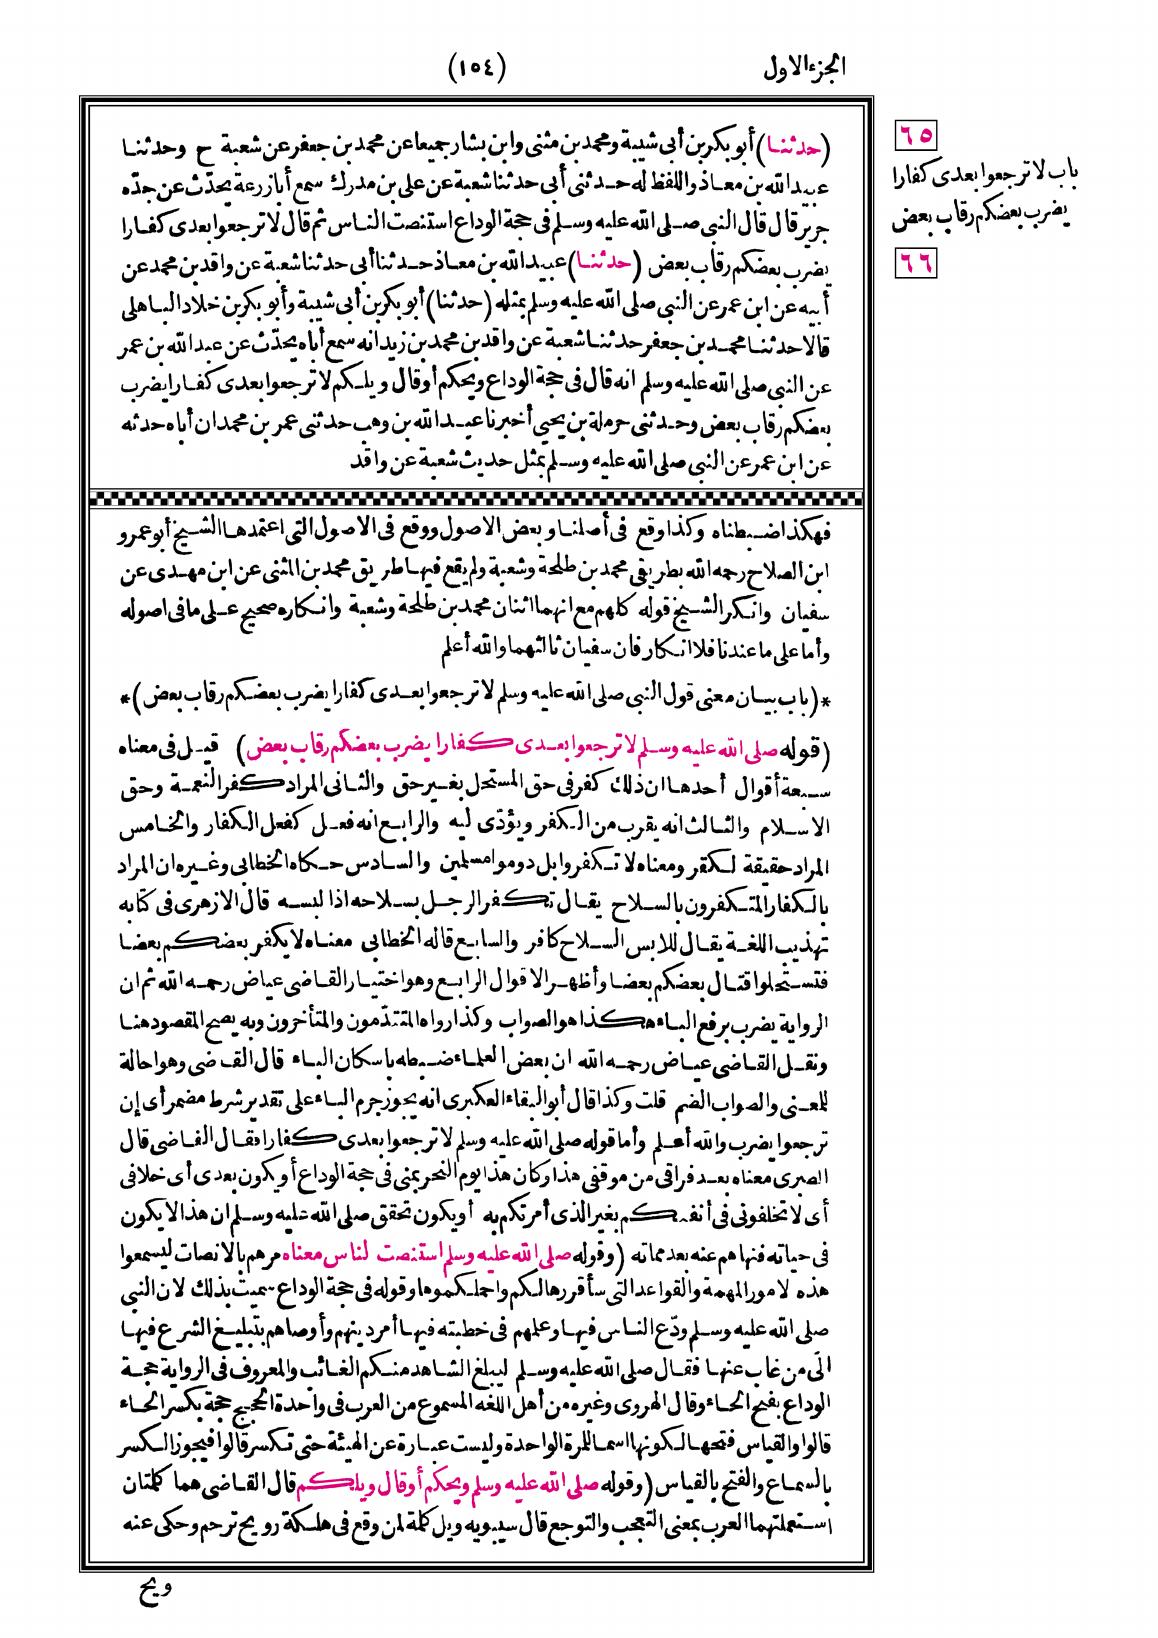 الجزء الاول
(١٥٤)
٦٥
باب لا ترجعوا بعدى كفارا
يضرب بعضكم رقاب بعض
٦٦
(حدثنا) أبو بكر بن أبى شيبة ومحمد بن مثنى وابن بشار جميعا عن محمد بن جعفر عن شعبة ح وحدثنا
عبيد الله بن معاذ واللفظ له حدثنى أبى حدثنا شعبة عن على بن مدرك سمع أبا زرعة يحدّث عن جدّه
جرير قال قال النبى صلى الله عليه وسلم فى حجة الوداع استنصت الناس ثم قال لا ترجعوا بعدى كفارا
يضرب بعضكم رقاب بعض (حدثنا) عبيد الله بن معاذ حدثنا أبى حدثنا شعبة عن واقد بن محمد عن
أبيه عن ابن عمر عن النبى صلى الله عليه وسلم بمثله (حدثنا) أبو بكر بن أبى شيبة وأبو بكر بن خلاد الباهلى
قالا حدثنا محمد بن جعفر حدثنا شعبة عن واقد بن محمد بن زيد انه سمع أباه يحدّث عن عبد الله بن عمر
عن النبى صلى الله عليه وسلم انه قال فى حجة الوداع ويحكم أو قال ويلكم لا ترجعوا بعدى كفارا يضرب
بعضكم رقاب بعض وحدثنى حرملة بن يحيى أخبرنا عبد الله بن وهب حدثنى عمر بن محمد ان أباه حدثه
عن ابن عمر عن النبى صلى الله عليه وسلم بمثل حديث شعبة عن واقد
فهكذا ضبطناه وكذا وقع فى أصلنا وبعض الاصول ووقع فى الاصول التى اعتمدها الشيخ أبو عمرو
ابن الصلاح رحمه الله بطريقى محمد بن طلحة وشعبة ولم يقع فيها طريق محمد بن المثنى عن ابن مهدى عن
سفيان وانكر الشيخ قوله كلهم مع انهما اثنان محمد بن طلحة وشعبة وانكاره صحيح على ما فى اصوله
وأما على ما عندنا فلا انكار فان سفيان ثالثهما والله أعلم
*(باب بيان معنى قول النبى صلى الله عليه وسلم لا ترجعوا بعدى كفارا يضرب بعضكم رقاب بعض)*
(قوله صلى الله عليه وسلم لا ترجعوا بعدى كفارا يضرب بعضكم رقاب بعض) قيل فى معناه
سبعة أقوال أحدها ان ذلك كفر فى حق المستحل بغير حق والثانى المراد كفر النعمة وحق
الاسلام والثالث انه يقرب من الكفر ويؤدّى ليه والرابع انه فعل كفعل الكفار والخامس
المراد حقيقة لكفر ومعناه لا تكفروا بل دوموا مسلمين والسادس حكاه الخطابى وغيره ان المراد
بالكفار المتكفرون بالسلاح يقال تكفر الرجل بسلاحه اذا لبسه قال الازهرى فى كتابه
تهذيب اللغة يقال للابس السلاح كافر والسابع قاله الخطابى معناه لا يكفر بعضكم بعضا
فتستحلوا قتال بعضكم بعضا وأظهر الاقوال الرابع وهو اختيار القاضى عياض رحمه الله ثم ان
الرواية يضرب برفع الباء هكذا هو الصواب وكذا رواه المتقدّمون والمتأخرون وبه يصح المقصود هنا
ونقل القاضى عياض رحمه الله ان بعض العلماء ضبطه باسكان الباء قال القاضى وهو احالة
للمعنى والصواب الضم قلت وكذا قال أبو البقاء العكبرى انه يجوز جزم الباء على تقدير شرط مضمر أى إن
ترجعوا يضرب والله أعلم وأما قوله صلى الله عليه وسلم لا ترجعوا بعدى كفارا فقال القاضى قال
الصبرى معناه بعد فراقى من موقفى هذا وكان هذا يوم النحر بمنى فى حجة الوداع أو يكون بعدى أى خلافى
أى لا تخلفونى فى أنفسكم بغير الذى أمرتكم به أو يكون تحقق صلى الله عليه وسلم ان هذا لا يكون
فى حياته فنهاهم عنه بعد مماته (وقوله صلى الله عليه وسلم استنصت لناس معناه مرهم بالانصات ليسمعوا
هذه لامور المهمة والقواعد التى سأقررها لكم واحملكموها وقوله فى حجة الوداع سميت بذلك لان النبى
صلى الله عليه وسلم ودّع الناس فيها وعلمهم فى خطبته فيها أمر دينهم وأوصاهم بتبليغ الشرع فيها
الى من غاب عنها فقال صلى الله عليه وسلم ليبلغ الشاهد منكم الغائب والمعروف فى الرواية حجة
الوداع بفتح الحاء وقال الهروى وغيره من أهل اللغة المسموع من العرب فى واحدة الحجج حجة بكسر الحاء
قالوا والقياس فتحها لكونها اسما للمرة الواحدة وليست عبارة عن الهيئة حتى تكسر قالوا فيجوز الكسر
بالسماع والفتح بالقياس (وقوله صلى الله عليه وسلم ويحكم أو قال ويلكم قال القاضى هما كلمتان
استعملتهما العرب بمعنى التعجب والتوجع قال سيبويه ويل كلمة لمن وقع فى هلكة وويح ترحم وحكى عنه
ويح